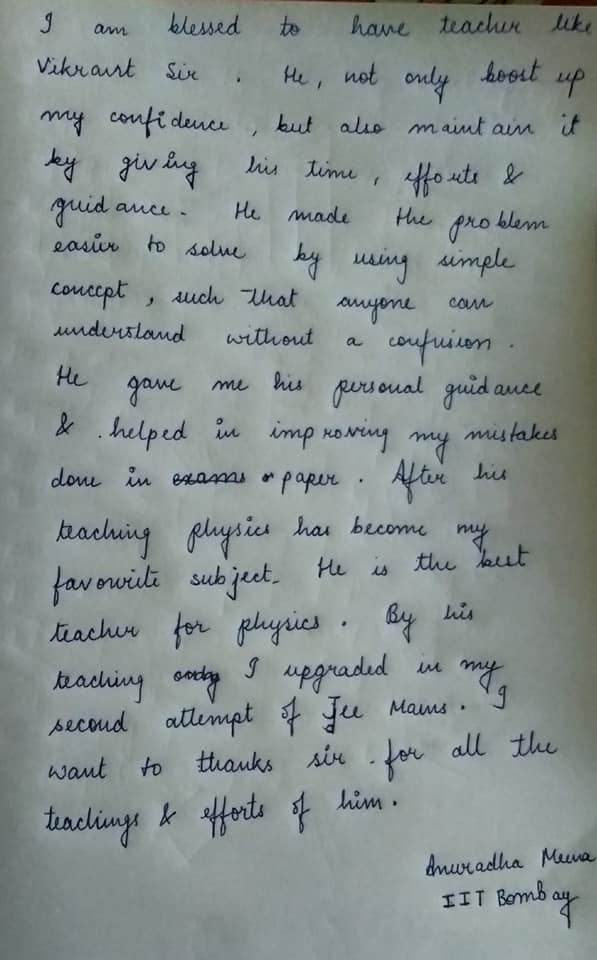 I am blessed to have teacher like
Vikrant Sir . He, not only boost up
my confidence , but also maintain it
by giving his time, efforts &
guidance. He made the problem
easier to solve by using simple
concept , such that anyone can
understand without a confusion .
He gave me his personal guidance
& . helped in improving my mistakes
done in exams paper . After his
teaching physics has become my
favourite subject. He is the best
teacher for physics . By his
teaching I upgraded in my
second attempt of Jee Mains . I
want to thanks sir . for all the
teachings & efforts of him .
Anuradha Meena
IIT Bombay